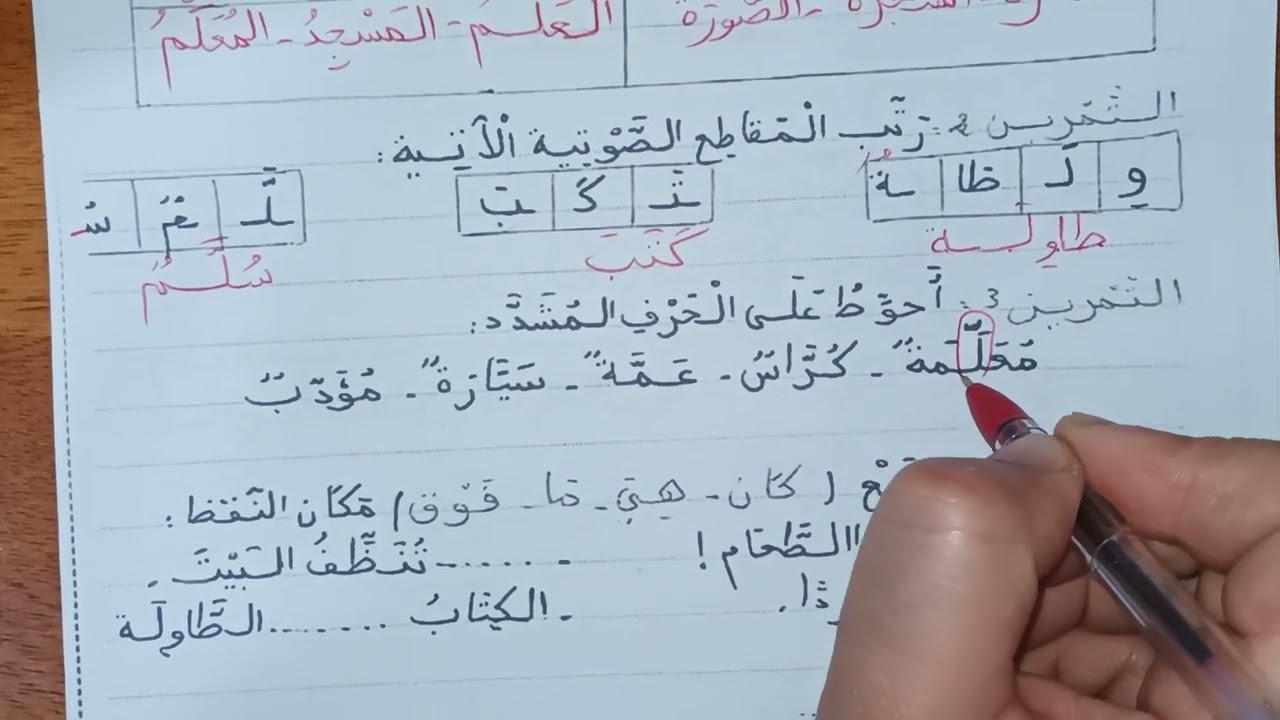 الصُّورَة
العَلَمُ - المَسْجِدُ - المُعَلِّمُ
التَّمْرين 2: رَتِّب الْمَقاطِع الصَّوْتِية الْآتِية :
وِ لَ طا ـةُ
تَ كَ بَ
لَّ مُ سُ
طاوِلـة كَتَبَ سُلَّمُ
التَّمْرين 3: أُحَوِّطُ عَلَى الْحَرْفِ المُشَدَّد :
مُعَلِّمَةٌ - كُرَّاسٌ - عَمَّةٌ - سَيَّارَةٌ - مُؤَدِّبٌ
( كان - هِيَ - ما - فَوْقَ ) مَكان النُّقَط :
الطَّعام !
...... تُنَظِّفُ البَيْتَ .
دًّا .
- الكِتابُ ....... الطَّاوِلَة